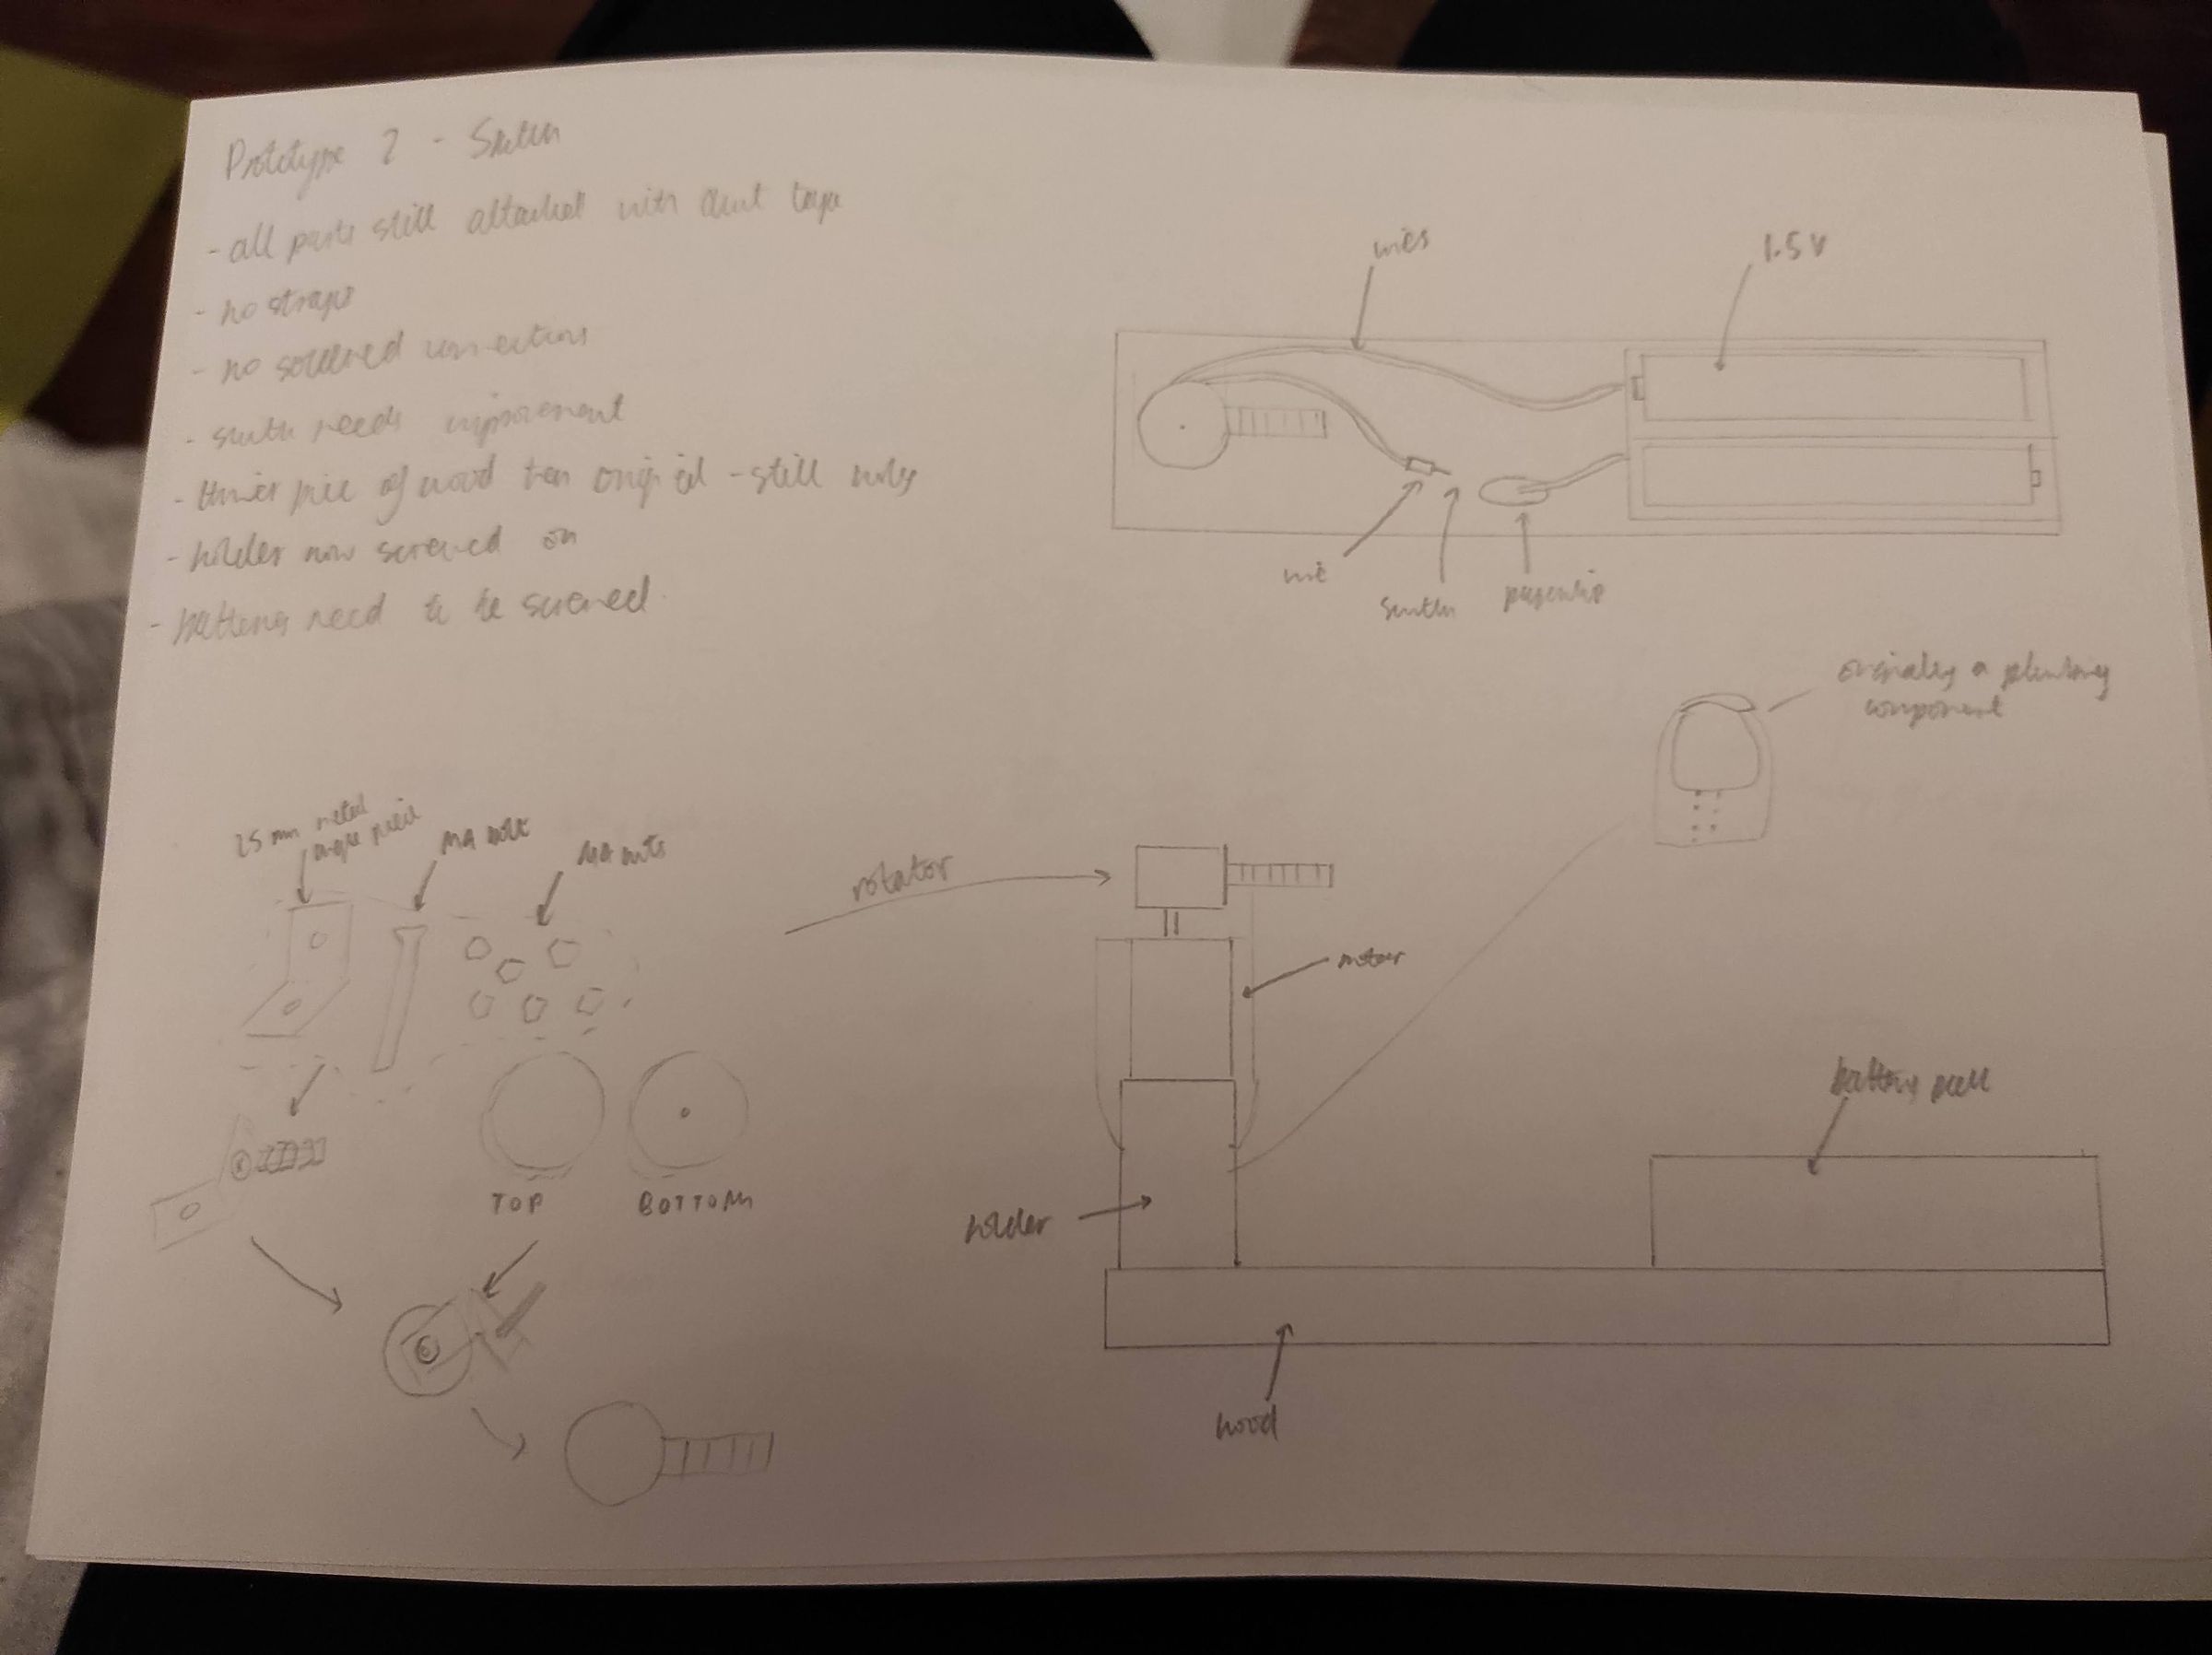 Prototype 2 - Sketch
- all parts still attached with duct tape
- no straps
- no soldered connections
- switch needs improvement
- thinner piece of wood than original - still
- holder now screwed on
- batteries need to be screwed.
wires
1.5 V
wire
switch
paperclip
originally a plumbing
component
25 mm metal
angle piece
M4 bolt
M4 nuts
rotator
motor
TOP
BOTTOM
battery pack
holder
wood